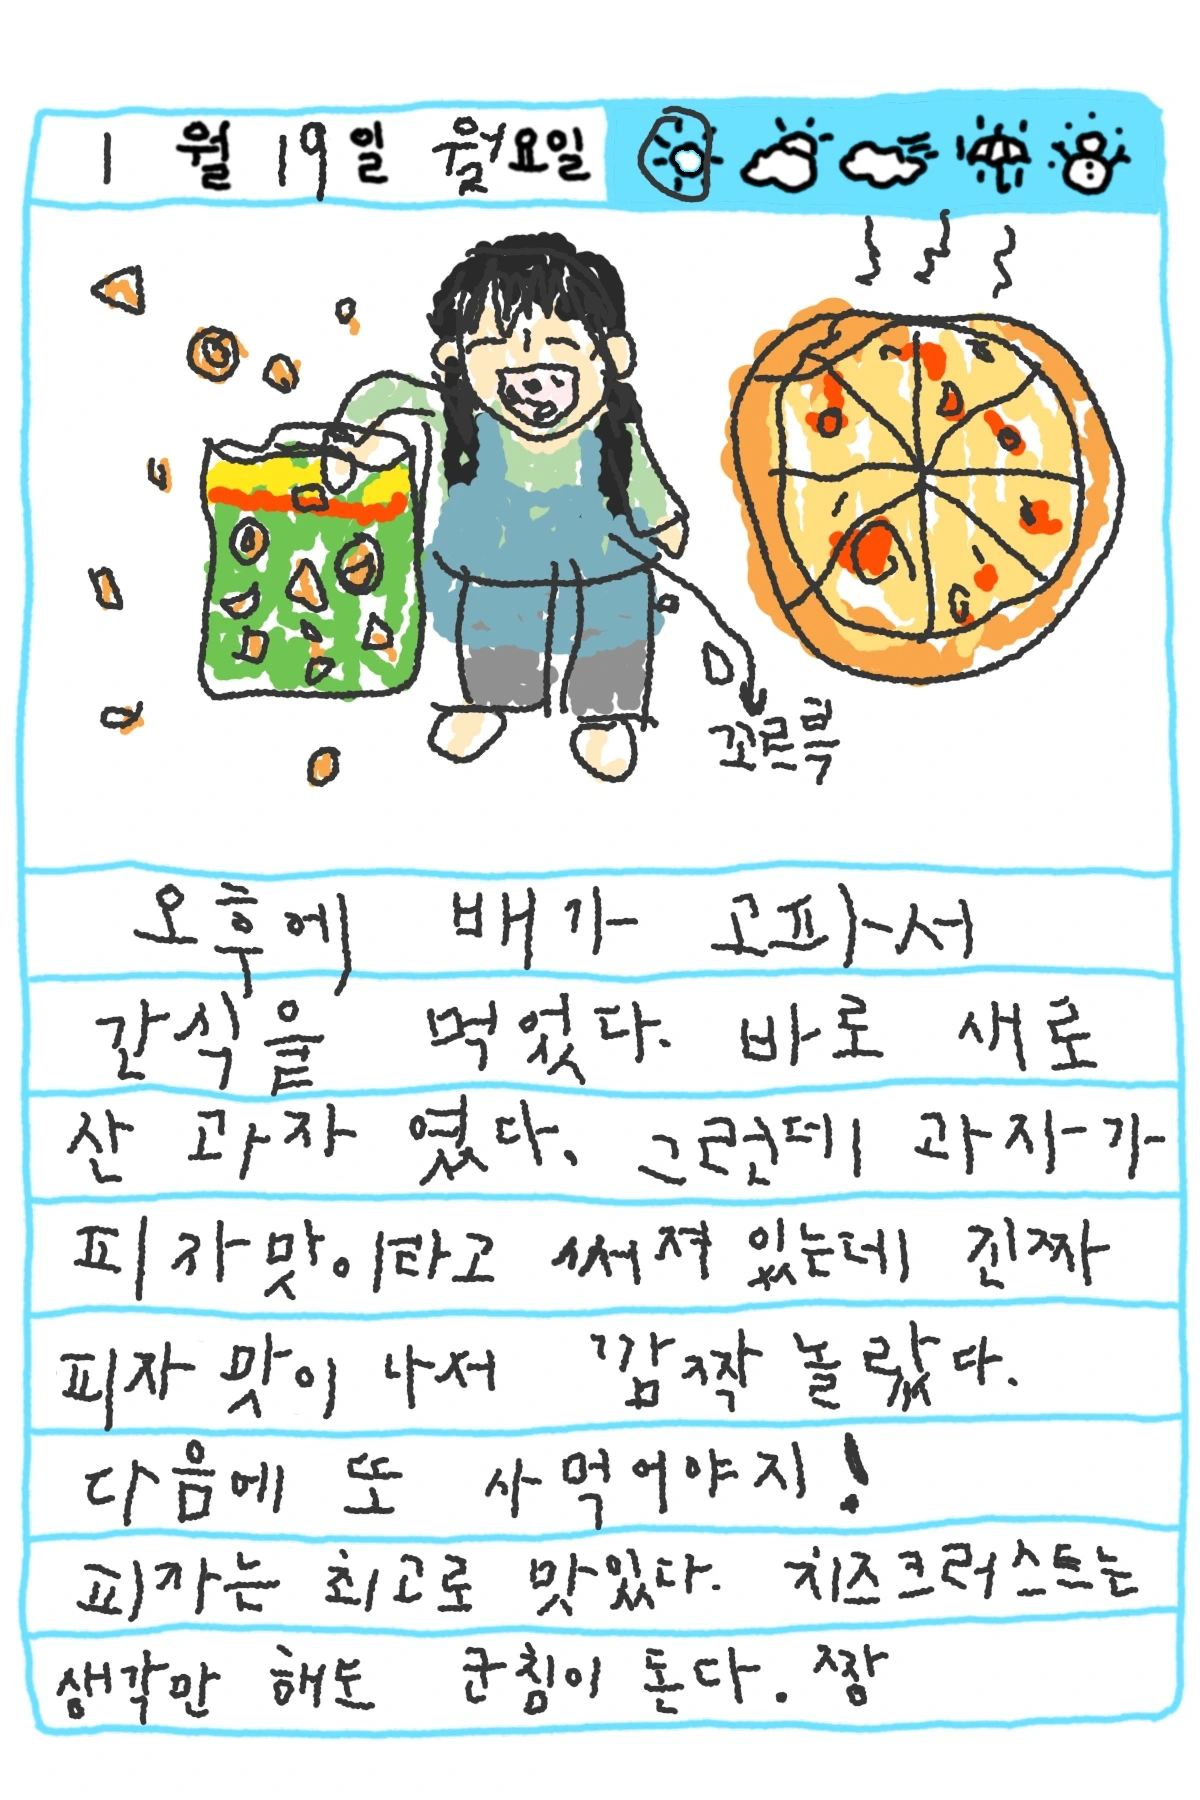 1 월 19 일 월요일
꼬르륵
오후에 배가 고파서
간식을 먹었다. 바로 새로
산 과자 였다. 그런데 과자가
피자맛이라고 써져 있는데 진짜
피자 맛이 나서 깜짝 놀랐다.
다음에 또 사먹어야지!
피자는 최고로 맛있다. 치즈크러스트는
생각만 해도 군침이 돈다. 짱